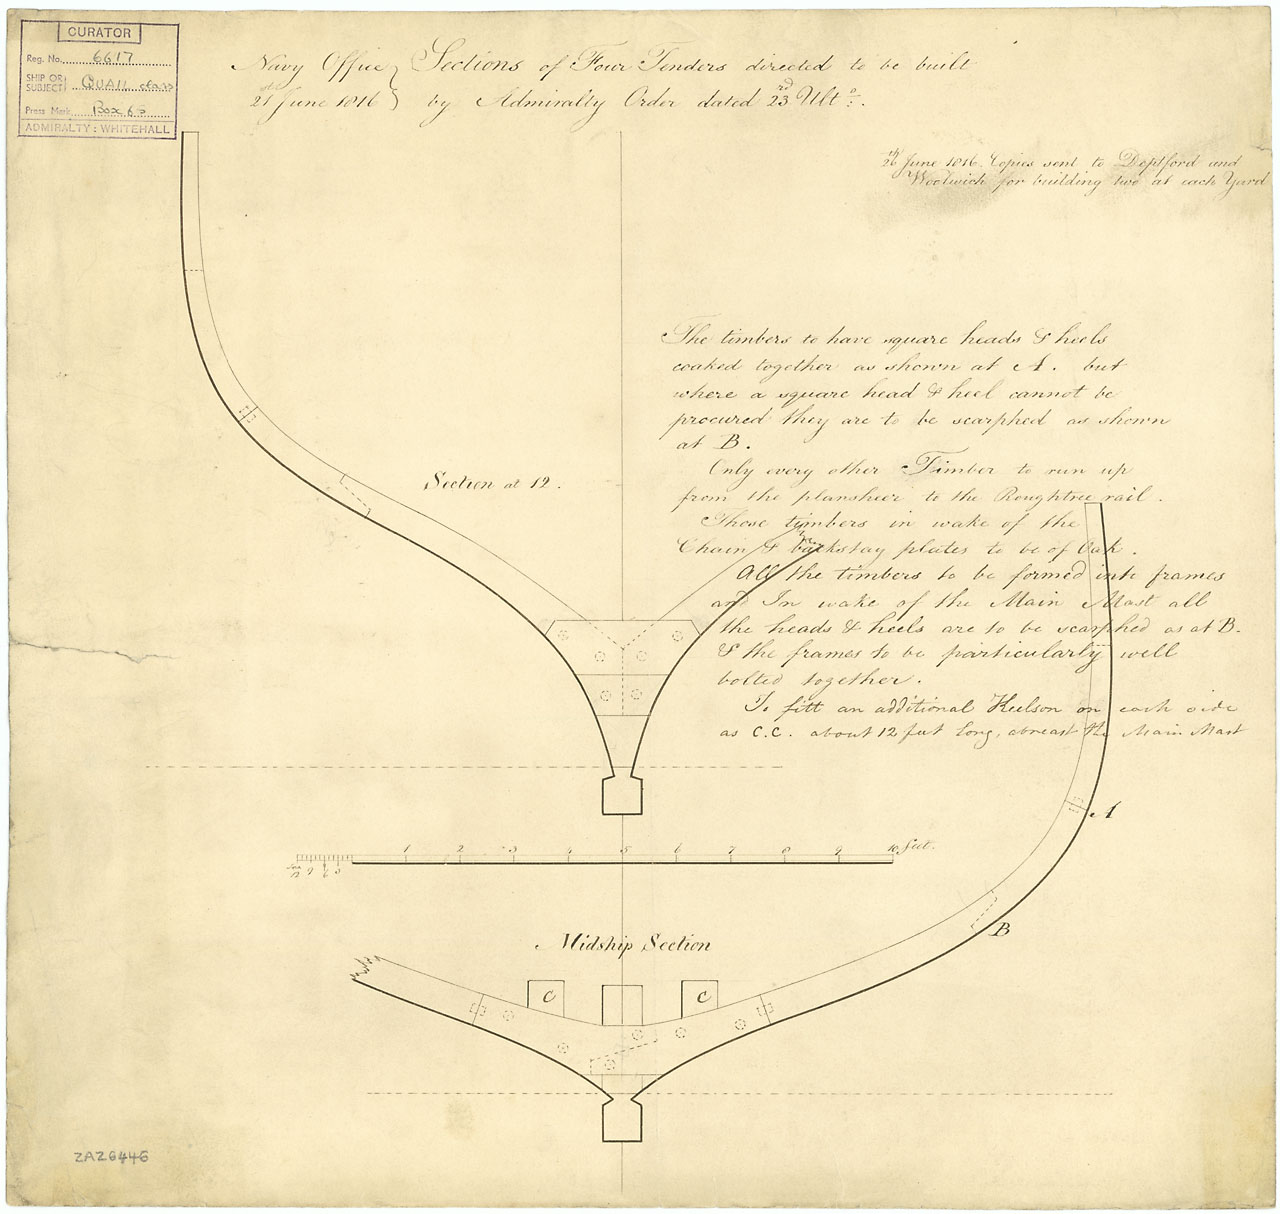 CURATOR
Reg. No. 6617
SHIP OR SUBJECT QUAIL class
Press Mark Box 65
ADMIRALTY: WHITEHALL
Navy Office } Sections of Four Tenders directed to be built
21st June 1816 } by Admiralty Order dated 23rd Ulto.
26th June 1816. Copies sent to Deptford and
Woolwich for building two at each Yard
The timbers to have square heads & heels
coaked together as shown at A. but
where a square head & heel cannot be
procured they are to be scarphed as shown
at B.
Only every other Timber to run up
from the plansheer to the Roughtree rail.
Those timbers in wake of the
Chain & backstay plates to be of Oak.
All the timbers to be formed into frames
and In wake of the Main Mast all
the heads & heels are to be scarphed as at B.
& the frames to be particularly well
bolted together.
To fitt an additional Keelson on each side
as C.C. about 12 feet long, abreast the Main Mast
Section at 12.
A
12 9 6 3 1 2 3 4 5 6 7 8 9 10 Feet.
B
Midship Section
C C
ZAZ6446